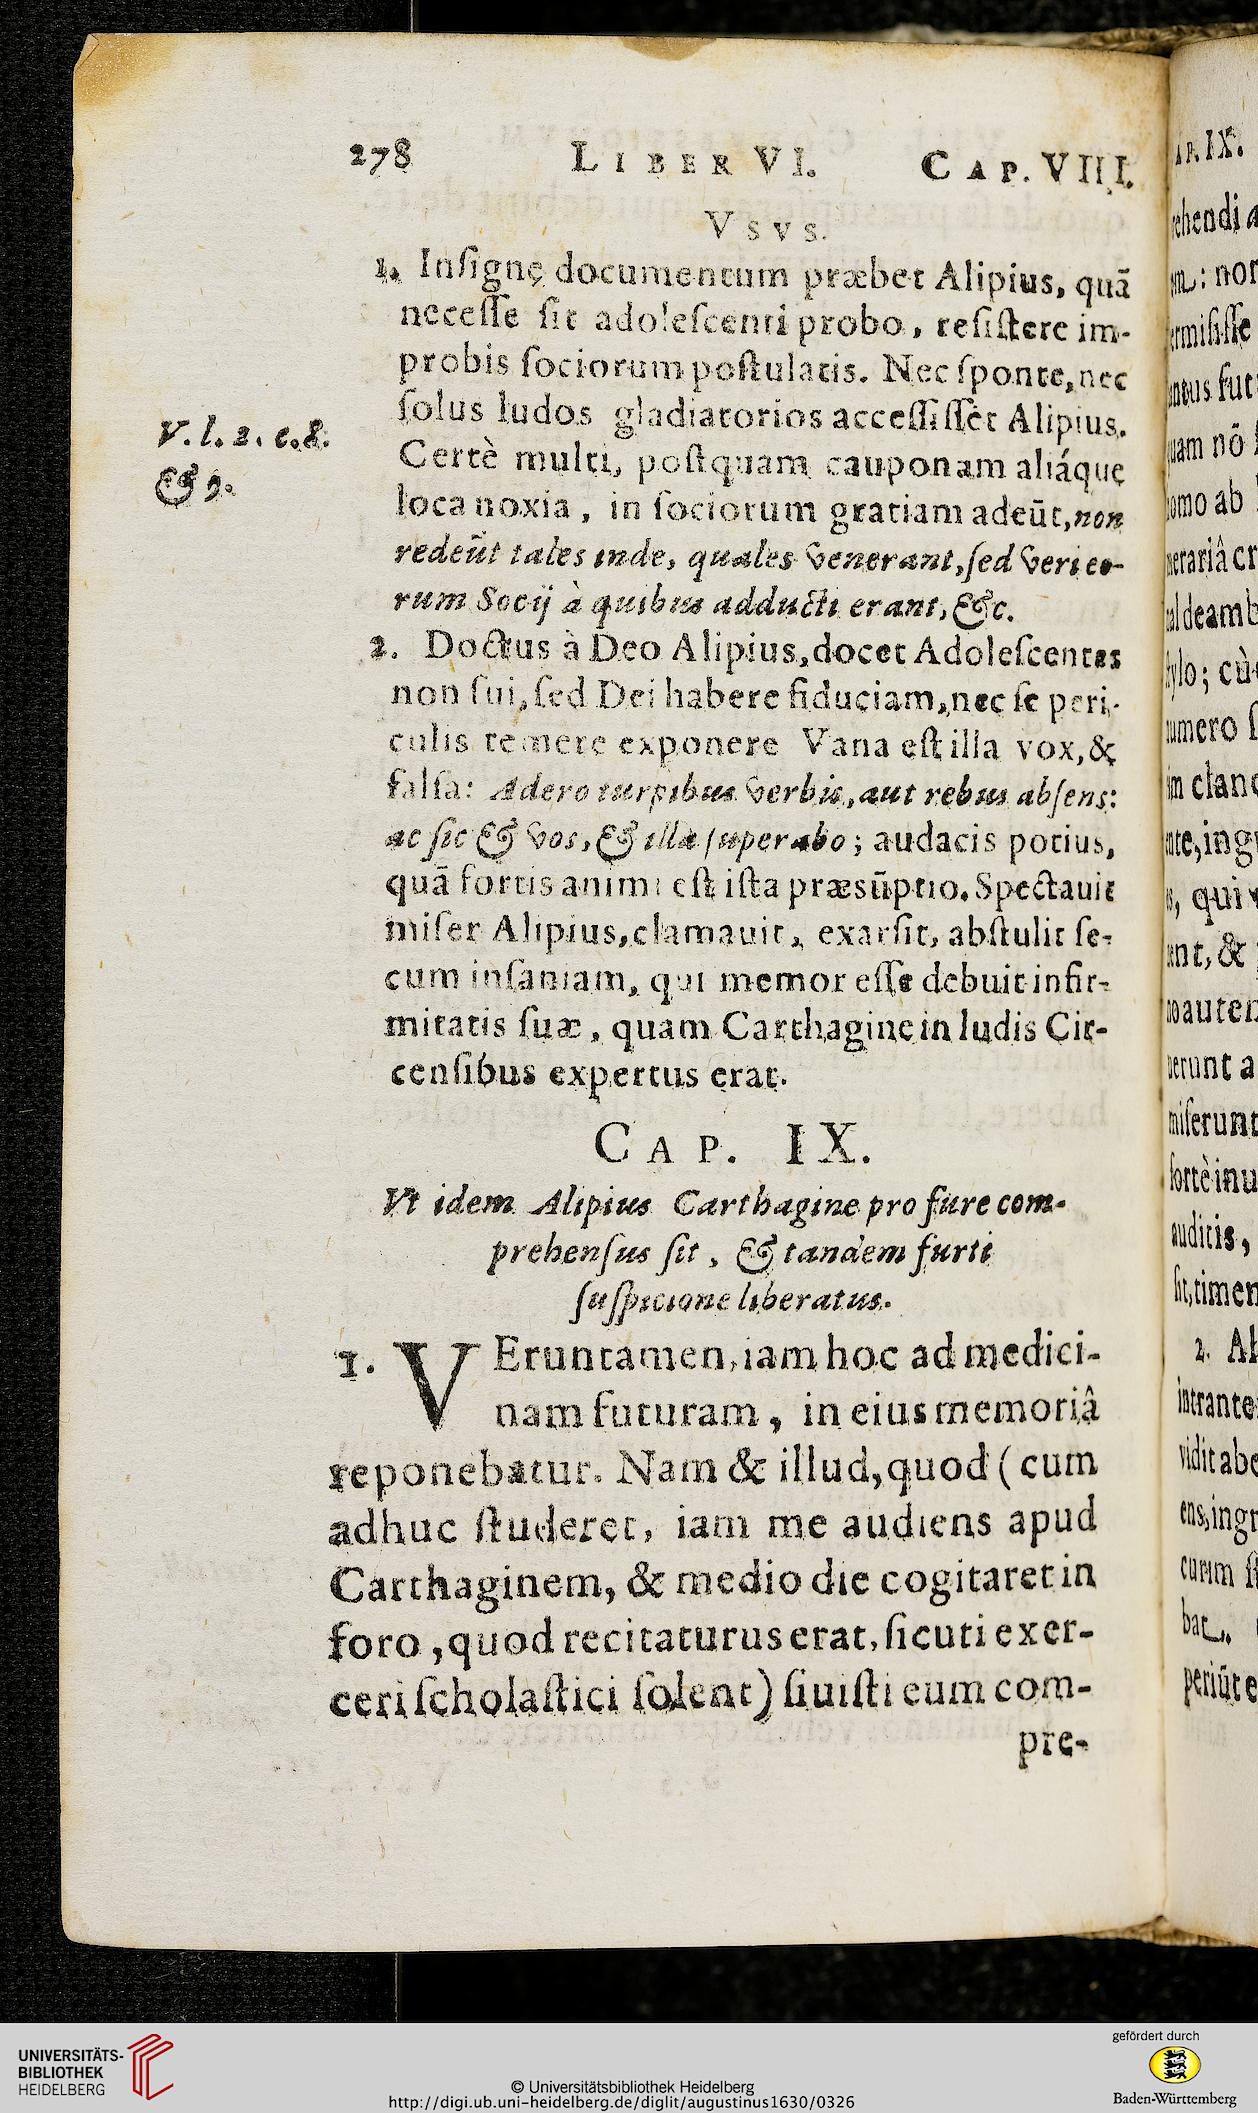 278 LIBER VI. CAP. VIII.
VSVS.
1. Insigne documentum præbet Alipius, quã
necesse sit adolescenti probo, resistere im-
probis sociorum postulatis. Nec sponte, nec
solus ludos gladiatorios accessisset Alipius.
Certè multi, postquam cauponam aliáque
loca noxia, in sociorum gratiam adeũt, non
redeũt tales inde, quales venerant, sed veri eo-
rum Socij à quibus adducti erant, &c.
V. l. 2. c. 8.
& 9.
2. Doctus à Deo Alipius, docet Adolescentes
non sui, sed Dei habere fiduciam, nec se peri-
culis temere exponere Vana est illa vox, &
falsa: Adero turpibus verbis, aut rebus absens:
ac sic & vos, & illa superabo; audacis potius,
quã fortis animi est ista præsũptio. Spectauit
miser Alipius, clamauit, exarsit, abstulit se-
cum insaniam, qui memor esse debuit infir-
mitatis suæ, quam Carthagine in ludis Cir-
censibus expertus erat.
CAP. IX.
Vt idem Alipius Carthagine pro fure com-
prehensus sit, & tandem furti
suspicione liberatus.
1. VEruntamen, iam hoc ad medici-
nam futuram, in eius memoriâ
reponebatur. Nam & illud, quod (cum
adhuc studeret, iam me audiens apud
Carthaginem, & medio die cogitaret in
foro, quod recitaturus erat, sicuti exer-
ceri scholastici solent) siuisti eum com-
pre-
AP. IX.
ehendi a
: nor
ermisisse
entus fut
uam nõ
omo ab
erariâ cr
al deamb
ylo; cù
umero s
in clanc
nte, ing
s, qui v
ent, &
o auten
erunt a
miserunt
fortè inu
auditis,
sit, timen
2. Al
intrante
vidit abe
ens, ingr
curim st
bat,
periũt e
UNIVERSITÄTS-
BIBLIOTHEK
HEIDELBERG
© Universitätsbibliothek Heidelberg
http://digi.ub.uni-heidelberg.de/diglit/augustinus1630/0326
gefördert durch
Baden-Württemberg